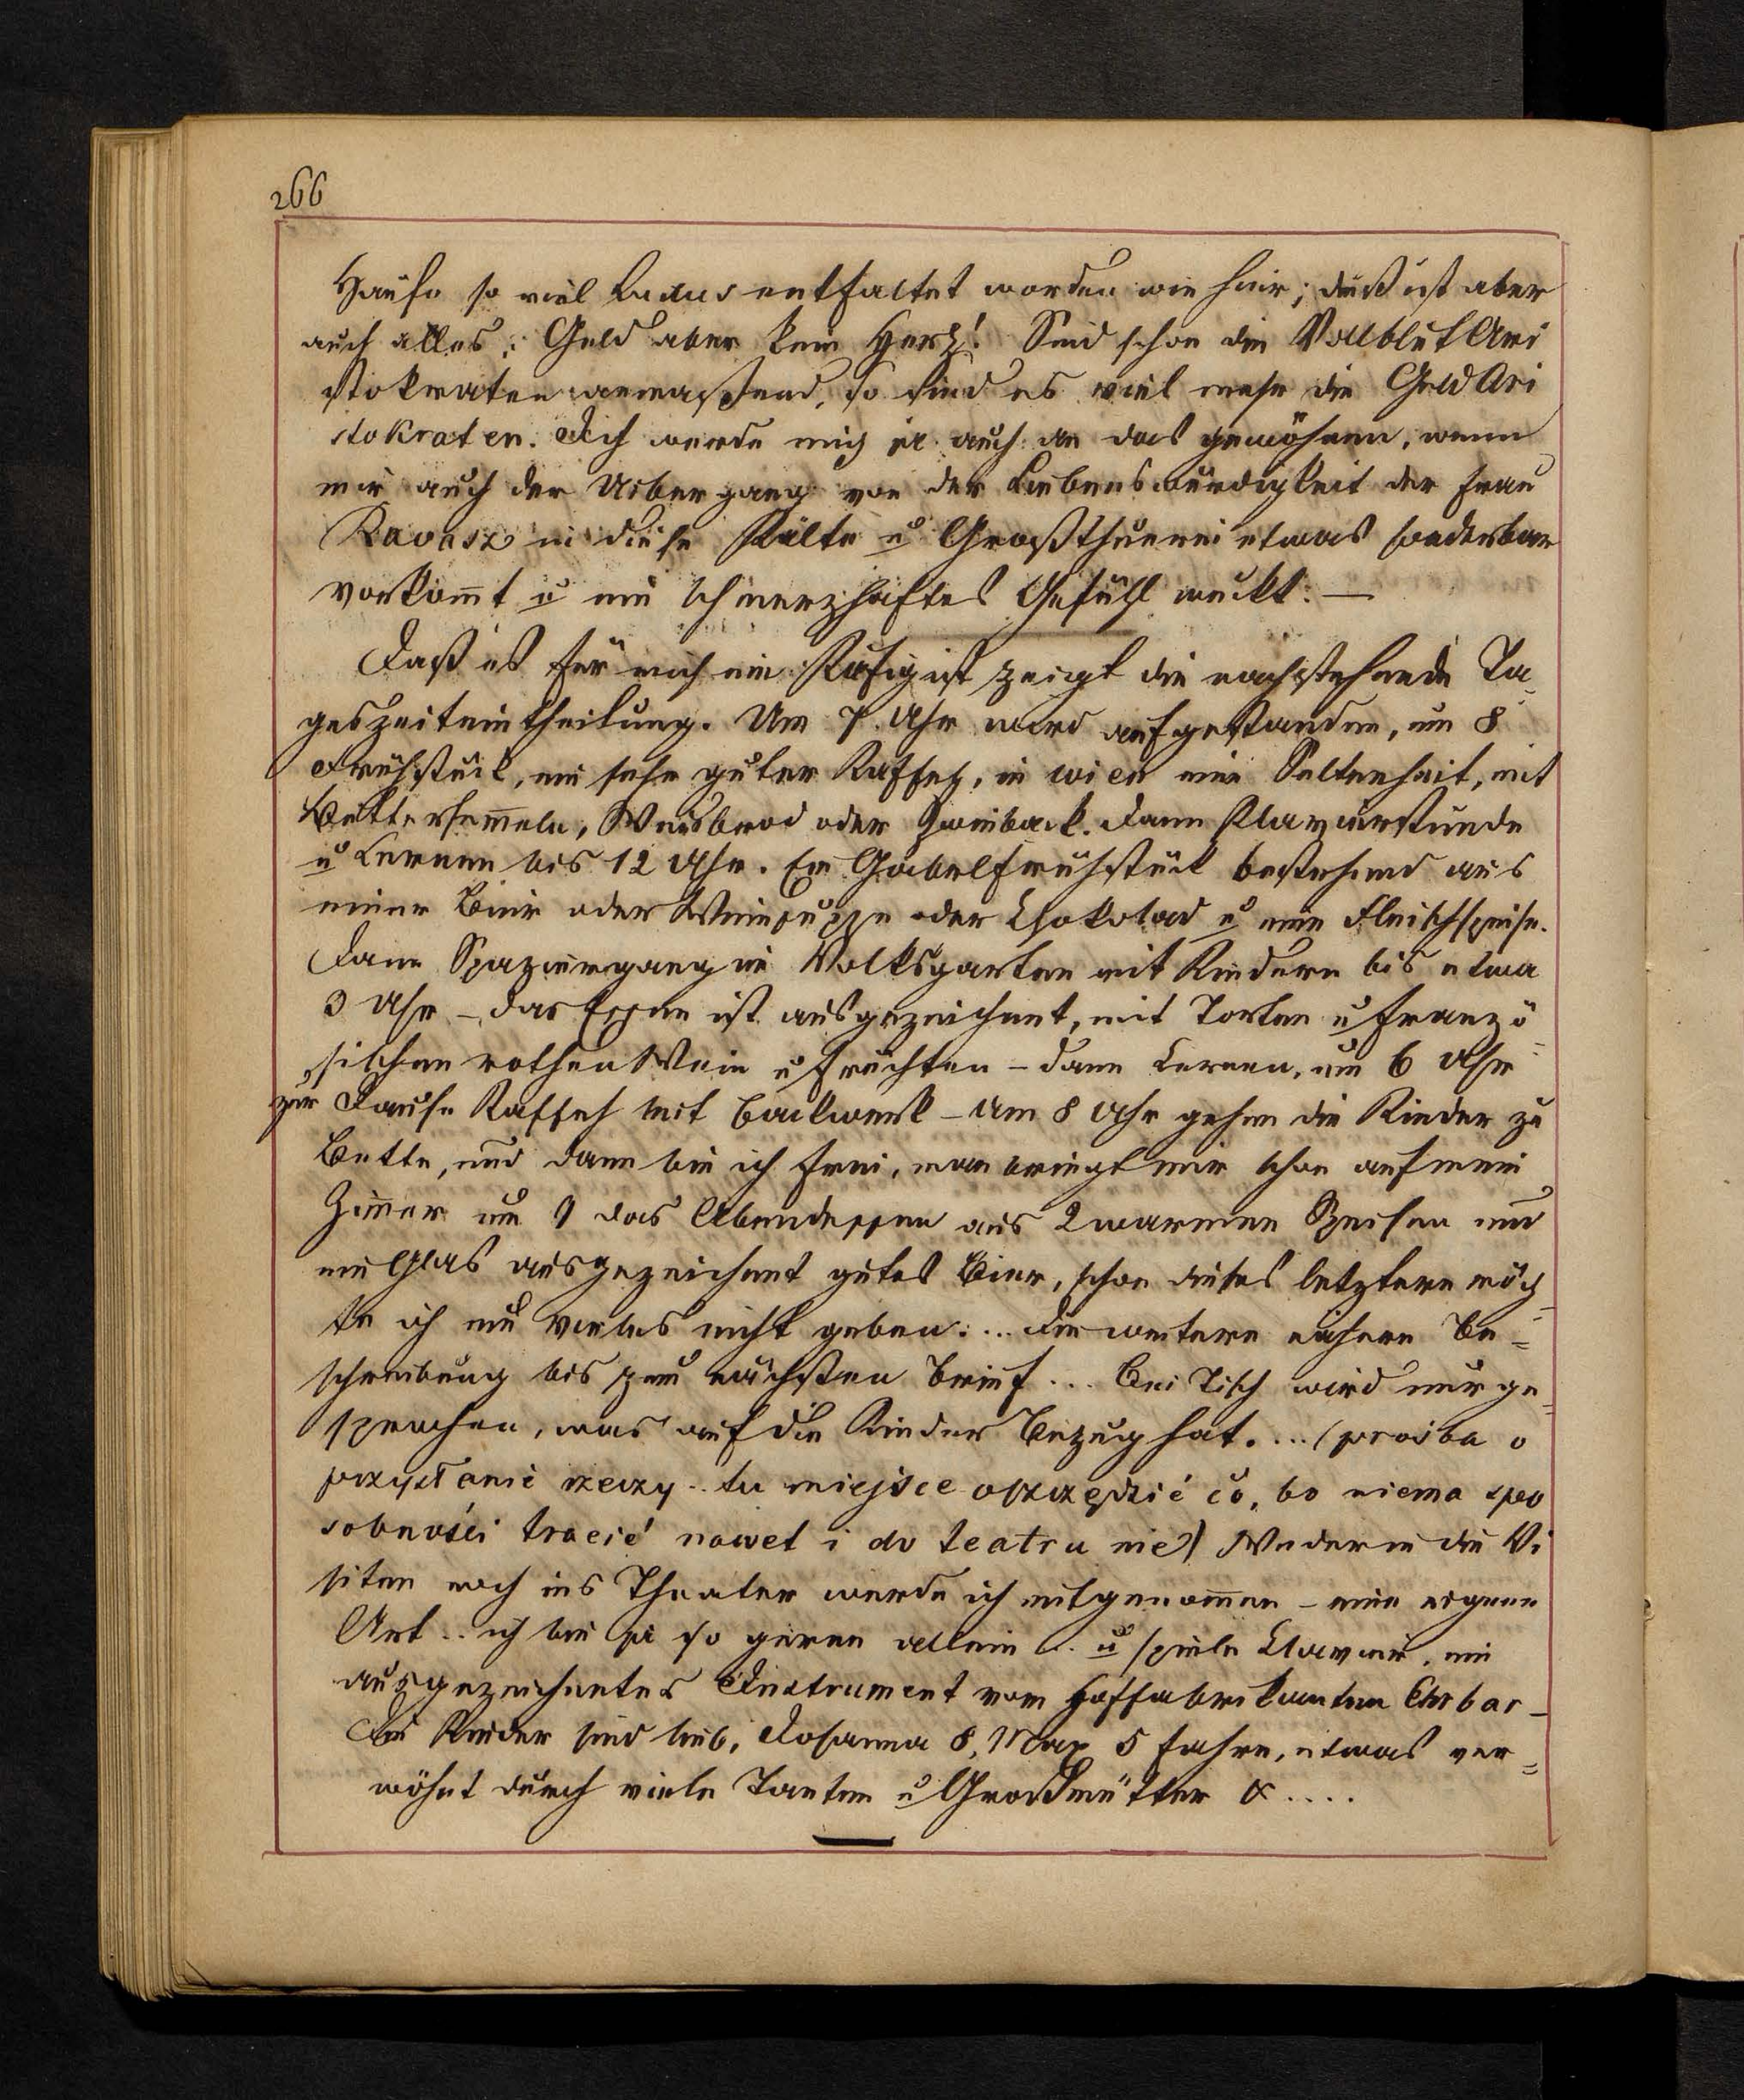 266
Hause so viel Luxus entfaltet worden wie hier; dieß ist aber
auch alles; Geld aber kein Herz! Sind schon die Vollblut Ari
stokraten anmaßend, so sind es viel mehr die Geld Ari
stokraten. Ich werde mich ja auch an das gewöhnen, wenn
mir auch der Uibergang von der Liebenswürdigkeit der Frau
Ravasz in diese Kälte u Großthuerei etwas sonderbar
vorkom̅t u ein schmerzhaftes Gefühl weckt. —
Daß es für mich ein Käfig ist zeigt die nachstehende Ta
geszeiteintheilung. Um 7 Uhr wird aufgestanden, um 8
Frühstück, ein sehr guter Kaffeh, in Wien eine Seltenheit, mit
Buttersem̅eln, Weisbrod oder Zwieback. Dann Klavierstunde
u Lernen bis 12 Uhr. Ein Gabelfrühstück bestehend aus
einer Bier oder Weinsuppe oder Chokolad u eine Fleischspeise.
Dann Spaziergang in Volksgarten mit Kindern bis etwa
3 Uhr – das Essen ist ausgezeichnet, mit Torten u Franzö
sischen rothen Wein u Früchten – dann Lernen, um 6 Uhr
zur Jause Kaffeh mit Backwerk – Um 8 Uhr gehen die Kinder zu
Bette, und dann bin ich frei, man bringt mir schon auf mein
Zim̅er um 9 das Abendessen aus 2 warmen Speisen und
ein Glas ausgezeichnet gutes Bier, schon dieses letztere möch
te ich um vieles nicht geben. .. Die weitere nähere Be=
schreibung bis zum nächsten Brief ... Bei Tisch wird nur ge=
sprochen, was auf die Kinder Bezug hat. ... (prośba o
przysłanie rzeczy .. tu miejsce oszczędzić co, bo niema spo
sobności tracić nawet i do teatru nie) Weder in die Vi
siten noch ins Theater werde ich mitgenom̅en – eine eigene
Art .. ich bin ja so gerne allein .. u spiele Clavier, ein
ausgezeichnetes Instrument vom Hoffabrikanten Ehrbar –
Die Kinder sind lieb, Josanna 8, Max 5 Jahre, etwas ver=
wöhnt durch viele Tanten u Großmütter & ....